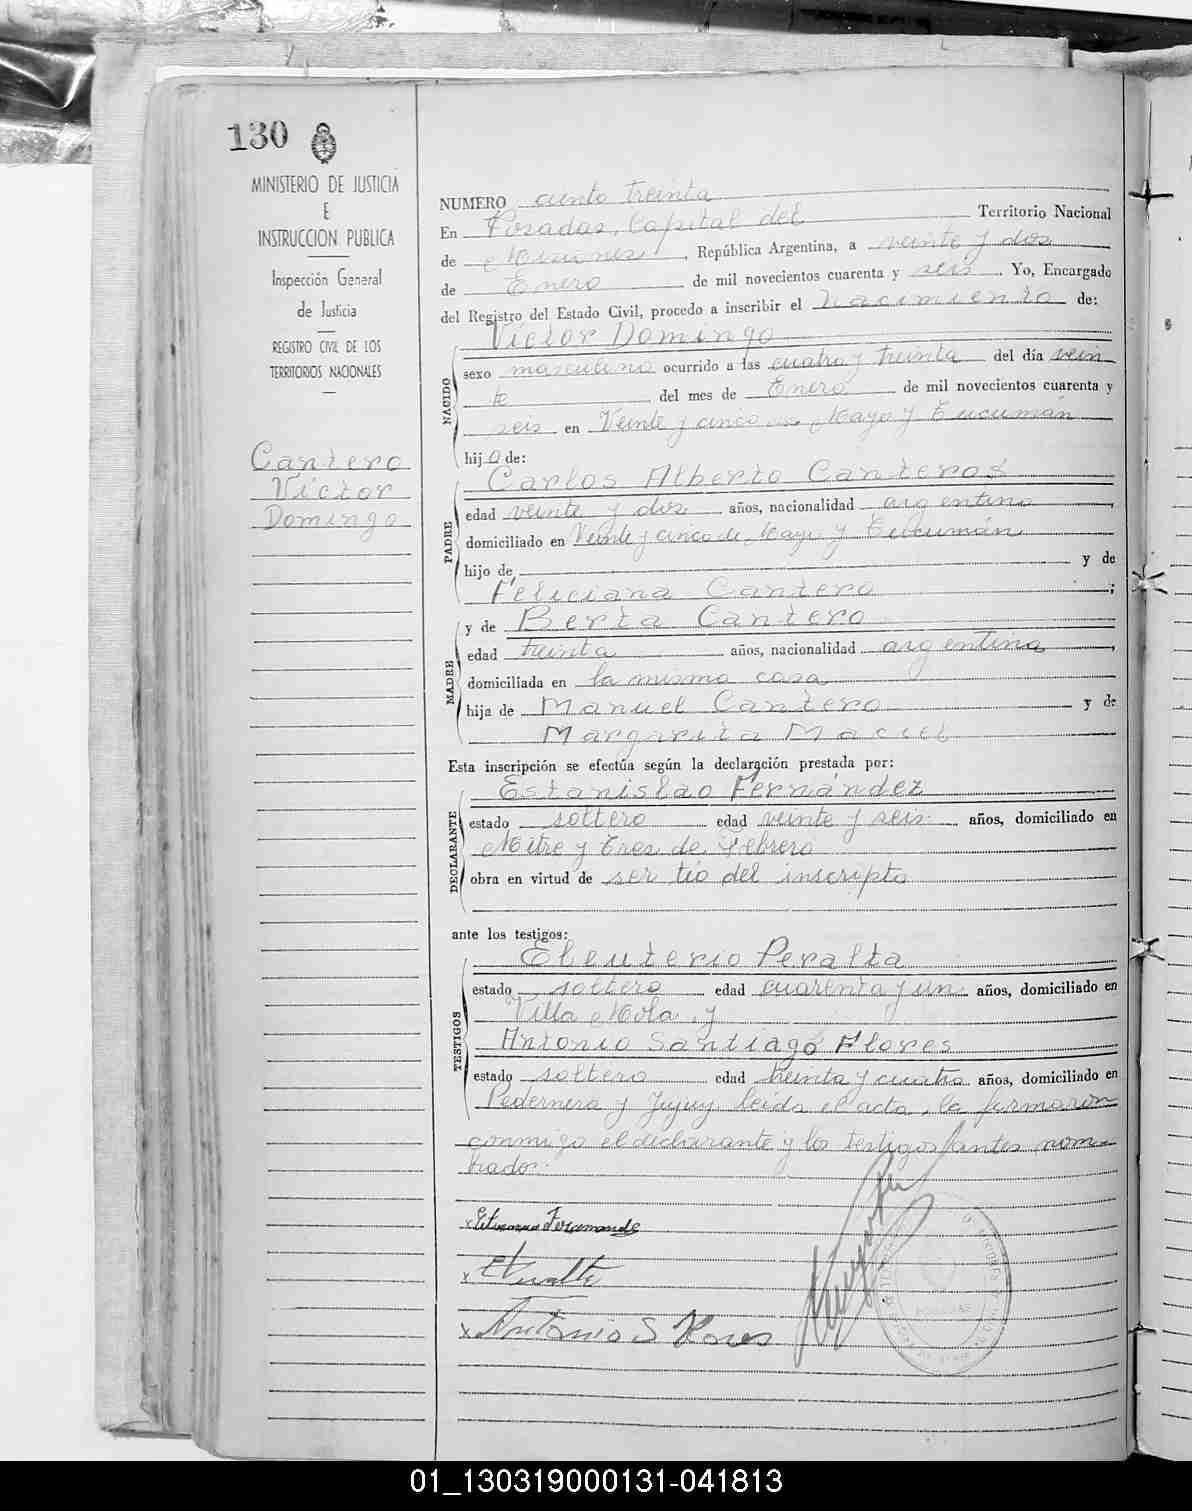 130
MINISTERIO DE JUSTICIA
E
INSTRUCCION PUBLICA
Inspección General
de Justicia
REGISTRO CIVIL DE LOS
TERRITORIOS NACIONALES
Cantero
Víctor
Domingo
NUMERO ciento treinta
En Posadas, Capital del Territorio Nacional
de Misiones, República Argentina, a veinte y dos
de Enero de mil novecientos cuarenta y seis. Yo, Encargado
del Registro del Estado Civil, procedo a inscribir el nacimiento de:
NACIDO
Víctor Domingo
sexo masculino ocurrido a las cuatro y treinta del día vein
te del mes de Enero de mil novecientos cuarenta y
seis en Veinte y cinco de Mayo y Tucumán
hijo de:
PADRE
Carlos Alberto Canteros
edad veinte y dos años, nacionalidad argentina,
domiciliado en Veinte y cinco de Mayo y Tucumán
hijo de y de
Feliciana Cantero;
MADRE
y de Berta Cantero
edad treinta años, nacionalidad argentina,
domiciliada en la misma casa
hija de Manuel Cantero y de
Margarita Maciel
Esta inscripción se efectúa según la declaración prestada por:
DECLARANTE
Estanislao Fernández
estado soltero edad veinte y seis años, domiciliado en
Mitre y Tres de Febrero
obra en virtud de ser tío del inscripto
ante los testigos:
TESTIGOS
Eleuterio Peralta
estado soltero edad cuarenta y un años, domiciliado en
Villa Mola, y
Antonio Santiago Flores
estado soltero edad treinta y cuatro años, domiciliado en
Pedernera y Jujuy leída el acta, la firmaron
conmigo el declarante y los testigos antes nom-
brados.
x Fernande
x
x Antonio S Flores
POSADAS
01_130319000131-041813